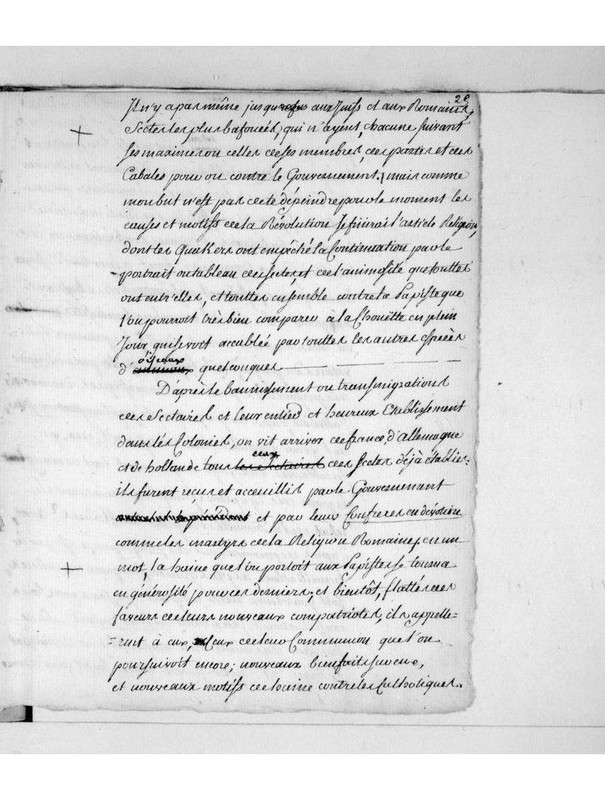 28
Il n'y a pas même jusqu'aux Juifs et aux Romains,
Sectes les plus bafouées, qui n'ayent, chacune, suivant
ses maximes ou celles de ses membres, des partis et des
Cabales pour ou contre le Gouvernement; mais comme
mon but n'est pas de dépeindre pour le moment les
causes et motifs de la Révolution Je finirai l'article Religion,
dont les Quakers ont empêché la Continuation par le
portrait ou tableau des sectes, et de l'animosité que toutes
ont entr'elles, et touttes ensemble contre la Papiste que
l'on pourroit très bien comparer à la Chouette en plein
Jour qui se voit accablée par touttes les autres espèces
d'oiseaux quelconques
D'après le bannissement ou transmigrations
des Sectaires et leur entier et heureux Etablissement
dans les Colonies, on vit arriver de france, d'allemagne
et de hollande tous les sectaires ceux des sectes déjà établies:
ils furent recus et acceuillis par le Gouvernement
et par leur Confreres en dévotion
comme les martyrs de la Religion Romaine, en un
mot, la haine que l'on portoit aux Papistes se tourna
en générosité pour ces derniers, et bientôt, flattés des
faveurs de leurs nouveaux compatriotes, ils appelle-
=rent à eux, ceux de leur Communion que l'on
poursuivoit encore; nouveaux bienfaits pour eux,
et nouveaux motifs de haine contre les Catholiques.